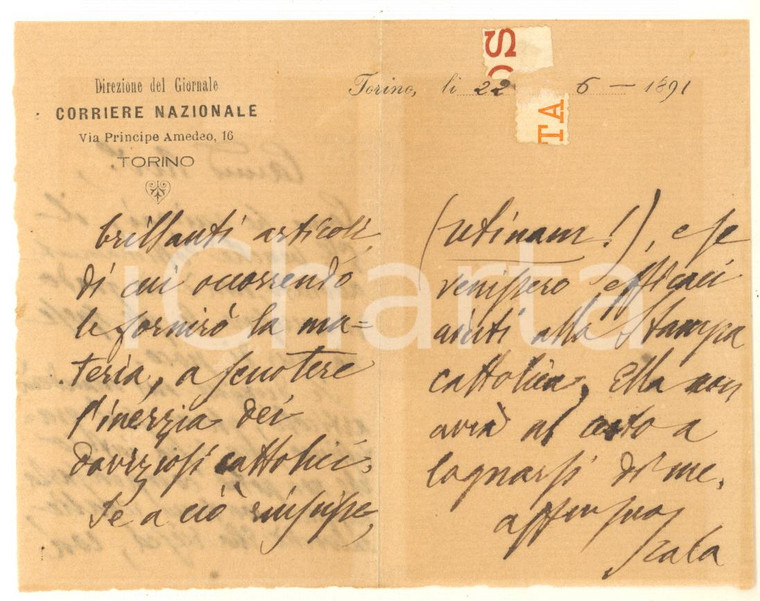 Direzione del Giornale
CORRIERE NAZIONALE
Via Principe Amedeo, 16
TORINO
Torino, li 22 6 - 1891
OS
TA
brillanti articoli,
di cui occorrendo
le fornirò la ma=
teria, a scuotere
l'inerzia dei
doviziosi cattolici.
Se a ciò riuscisse,
(utinam!), e se
venissero efficaci
aiuti alla Stampa
cattolica, Ella non
avrà al certo a
lagnarsi di me.
Scala
iCharta